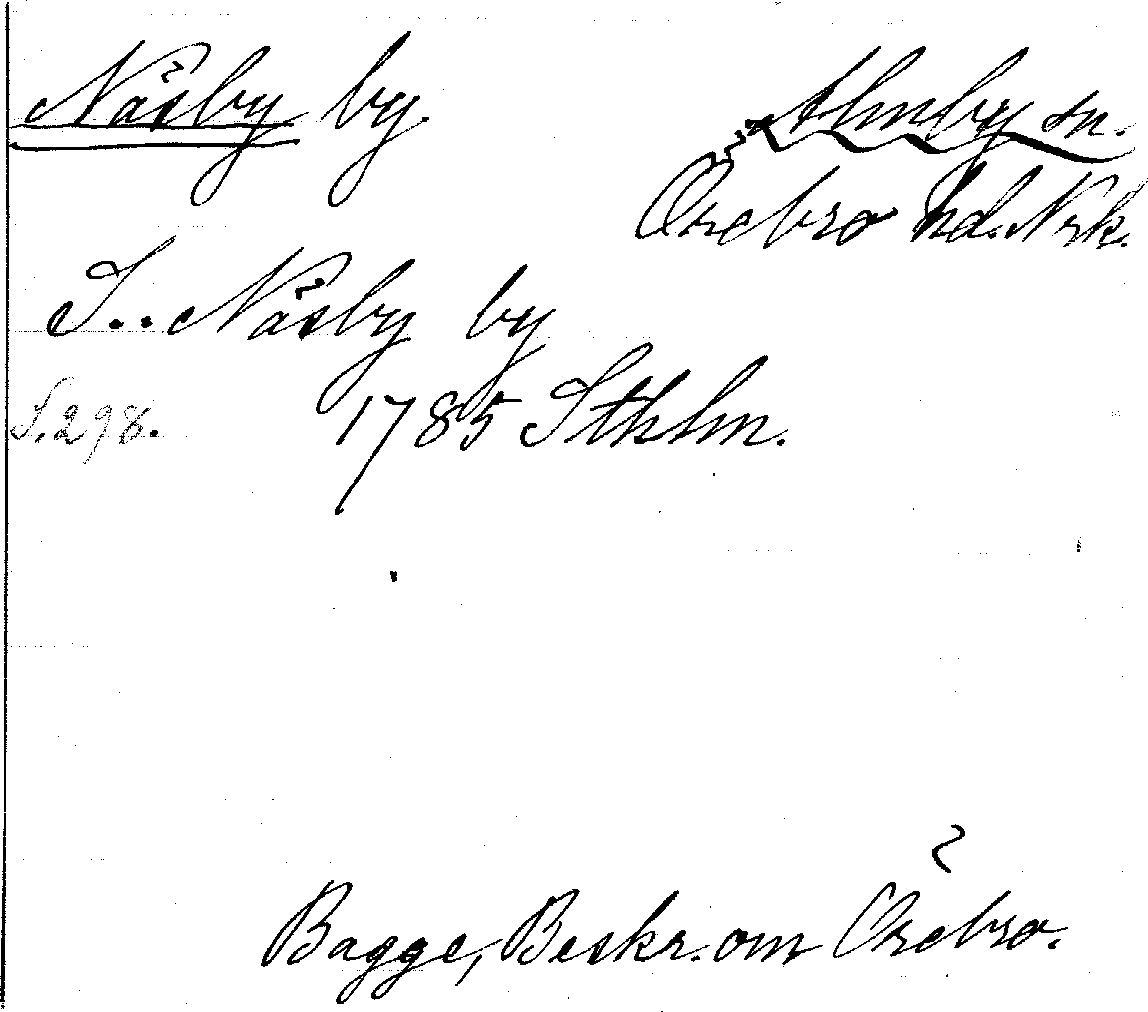 Näsby by.
Almby sn.
Örebro hd. Nrk.
S.. Näsby by
S. 298.
1785 Sthlm.
Bagge, Beskr. om Örebro.